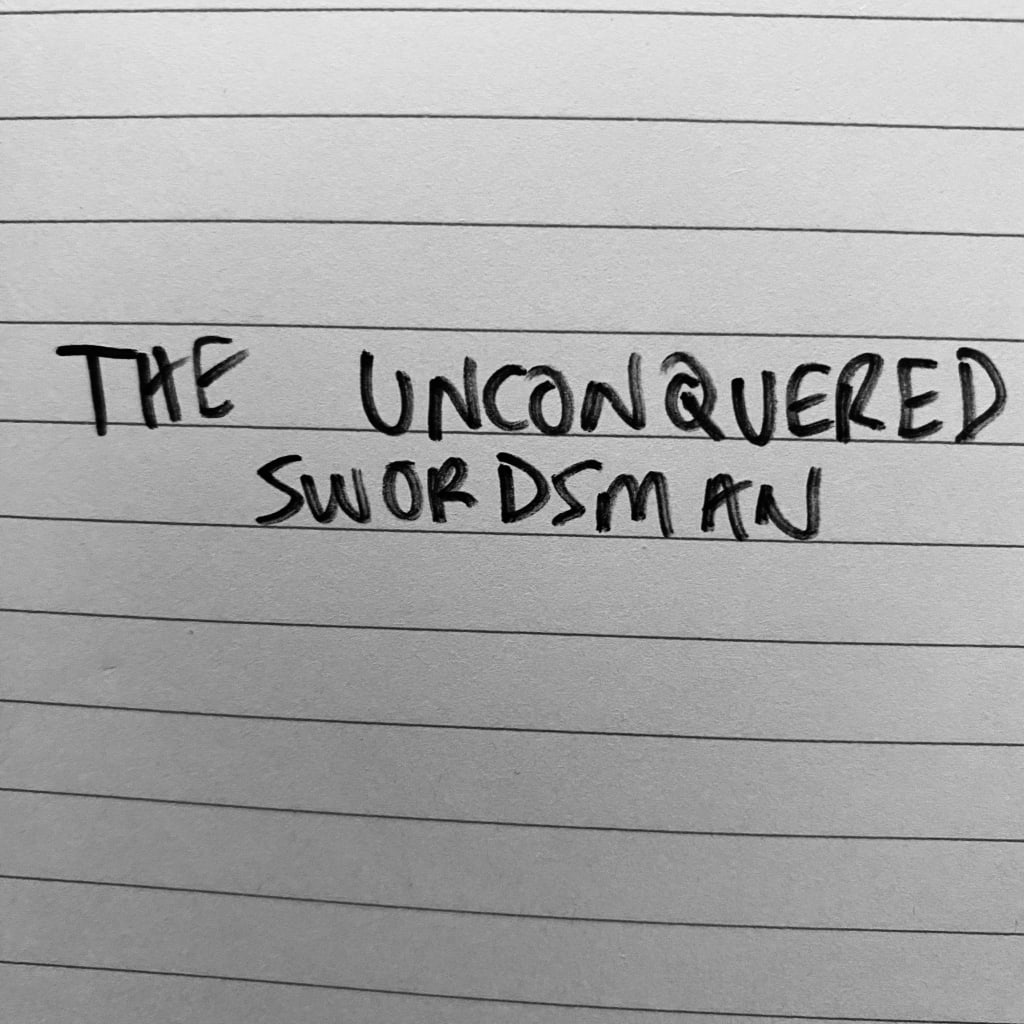 THE UNCONQUERED
SWORDSMAN